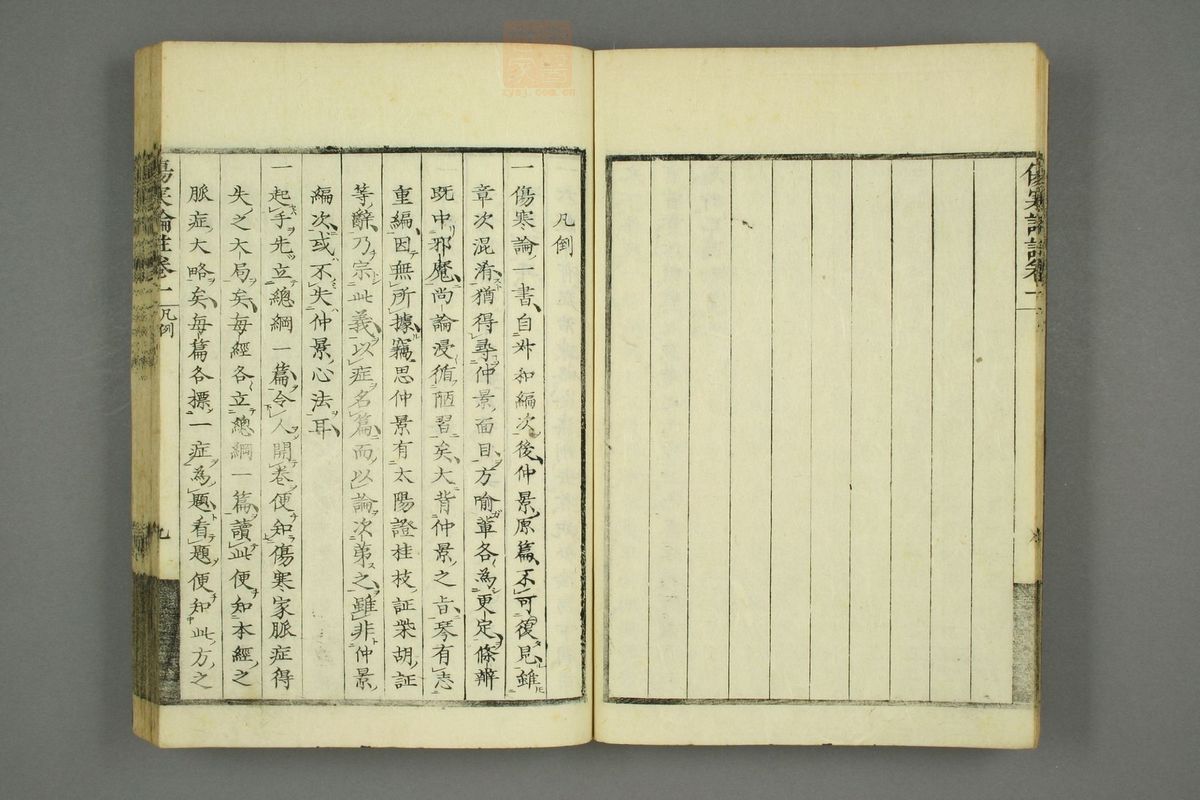 凡例
一傷寒論一書自叔和編次後仲景原篇不可復見雖
章次混淆猶得尋仲景面目方喻輩各為更定條辨
既中邪魔尚論浸循陋習矣大背仲景之旨琴有志
重編因無所據竊思仲景有太陽證桂枝証柴胡証
等辭乃宗此義以症名篇而以論次第之雖非仲景
編次或不失仲景心法耳
一起手先立總綱一篇令人開卷便知傷寒家脈症得
失之大局矣每經各立總綱一篇讀此便知本經之
脈症大略矣每篇各標一症為題看題便知此方之
傷寒論註卷一
凡例
九
zysj.com.cn